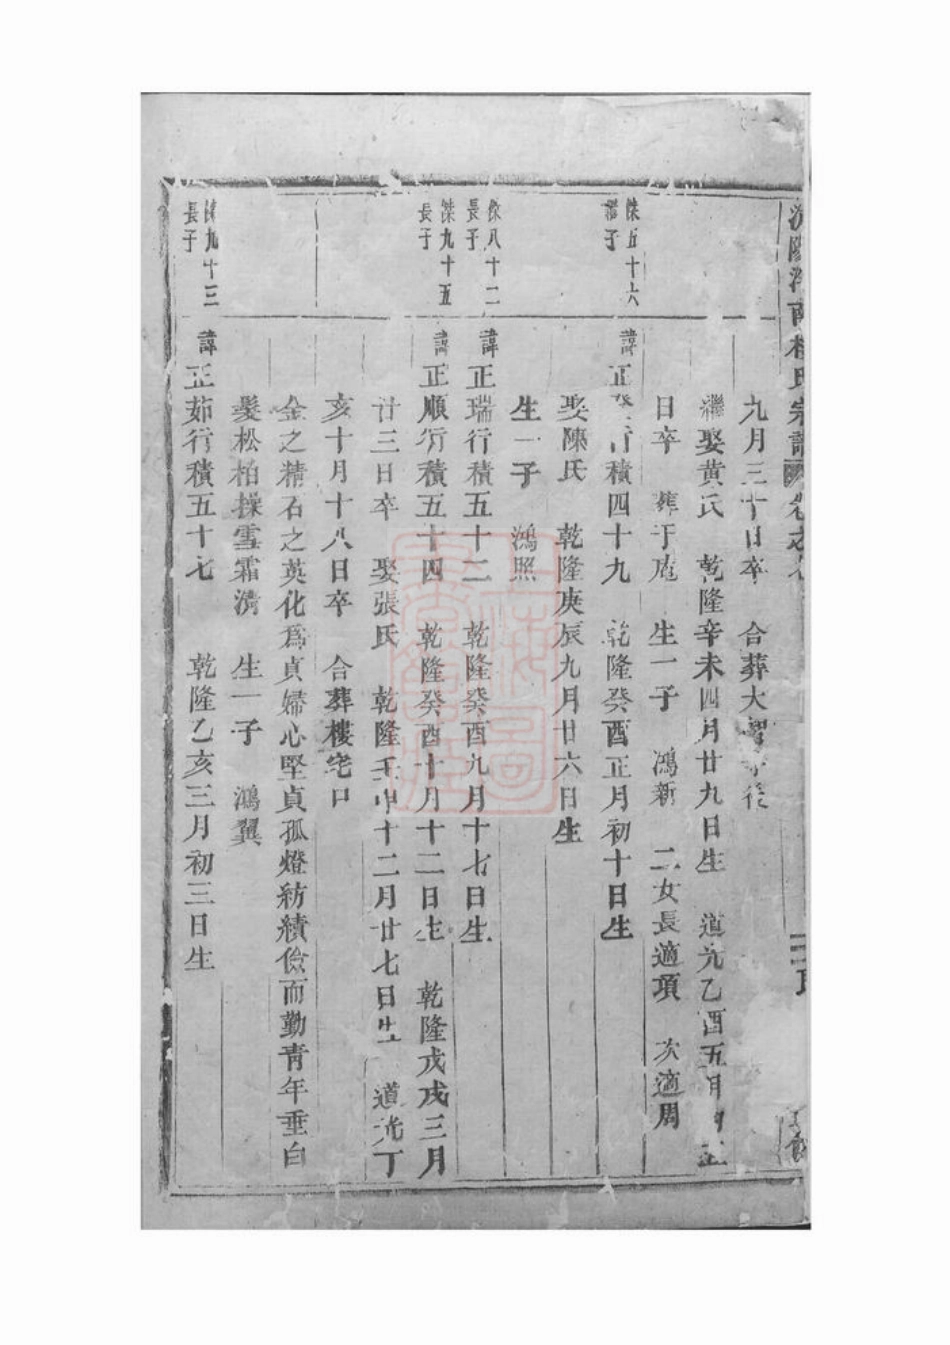 九月三十日卒 合葬大
繼娶黄氏 乾隆辛未四月廿九日生 道光乙酉五月
日卒 葬于庵 生一子 鴻新 二女長適項 次適周
傑五十六
繼子
諱正 行積四十九 乾隆癸酉正月初十日生
娶陳氏 乾隆庚辰九月廿六日生
生一子 鴻照
傑八十二
長子
諱正瑞行積五十二 乾隆癸酉九月十七日生
傑九十五
長子
諱正順行積五十四 乾隆癸酉十月十二日生 乾隆戊戌三月
廿三日卒 娶張氏 乾隆壬申十二月廿七日生 道光丁
亥十月十八日卒 合葬樓宅口
金之精石之英化爲貞婦心堅貞孤燈紡績儉而勤青年垂白
髮松柏操雪霜清 生一子 鴻翼
傑九十三
長子
諱正茹行積五十七 乾隆乙亥三月初三日生